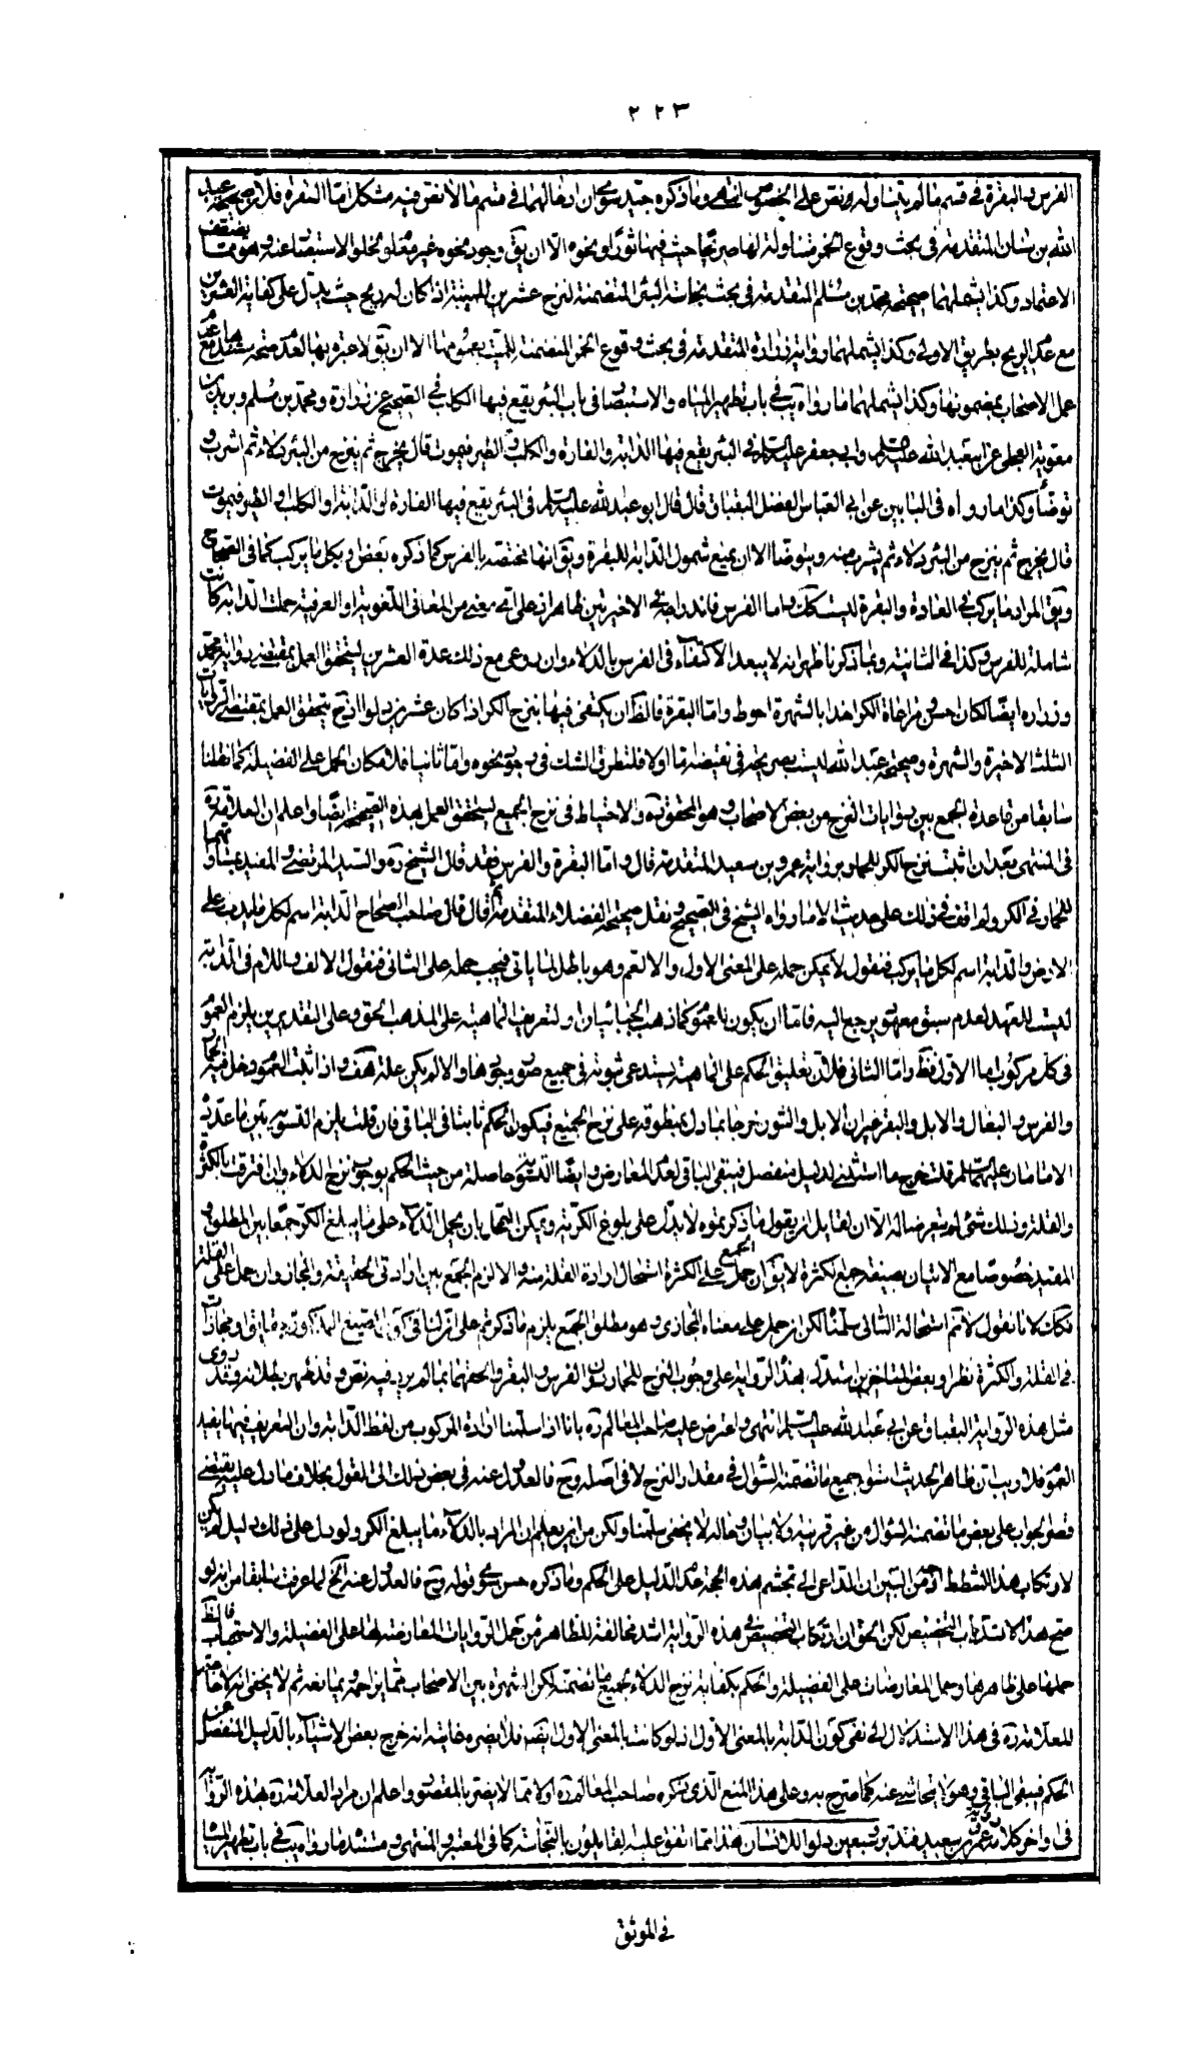 ٢٢٣
الفرس و البقرة فى قسم ما لم يتناوله نص على الخصوص انتهى وما ذكره جيد سوى ان ادخالهما فى قسم ما لا نص فيه مشكل اما البقرة فلان صحيحة عبد
الله بن سنان المتقدمة فى بحث وقوع الخمر متناولة لها صريحا حيث فيها ثور او نحوه الا ان يق وجود نحوه غير معلوم لخلو الاستبصار عنه
الاعتماد وكذا يشملهما صحيحة محمد بن مسلم المتقدمة فى بحث نجاسة البئر المتضمنة لنزح عشرين للميتة اذا كان له ريح حيث يدل على كفاية العشرين
مع عدم الريح بطريق الاولى وكذا يشملهما رواية زرارة المتقدمة فى بحث وقوع الخمر المتضمنة للميت بعمومها الا ان يق لا عبرة بها لعدم صحة سندها مع عدم
عمل الاصحاب بمضمونها وكذا يشملهما ما رواه يب فى باب تطهير المياه والاستبصار فى باب البئر يقع فيها الكلب فى الصحيح عن زرارة ومحمد بن مسلم وبريد بن
معوية العجلى عن ابيعبد الله عليه السلم وابى جعفر عليه السلم فى البئر يقع فيها الدابة والفارة والكلب و الطير فيموت قال يخرج ثم ينزح من البئر دلاء ثم اشرب و
توضأ وكذا ما رواه فى البابين عن ابى العباس الفضل البقباق قال قال ابو عبد الله عليه السلم فى البئر يقع فيها الفارة او الدابة او الكلب او الطير فيموت
قال يخرج ثم ينزح من البئر دلاء ثم يشرب منه ويتوضا الا ان يمنع شمول الدابة للبقرة ويق انها مختصة بالفرس كما ذكره بعض او بكل ما يركب كما فى الصحاح
ويق المراد ما يركب فى العادة والبقرة ليست كك واما الفرس فاندراجه فى الاخيرتين ظاهر اذ على اى معنى من المعانى اللغوية او العرفية حملت الدابة كانت
شاملة للفرس وكذا فى الثانية وبما ذكرنا ظهر انه لا يبعد الاكتفاء فى الفرس بالدلاء وان روعى مع ذلك عدة العشرين ليتحقق العمل بمقتضى رواية محمد
وزرارة ايضا لكان احسن ومراعاة الكر اخذا بالشهرة احوط واما البقرة فالظ ان يكتفى فيها بنزح الكر اذا كان عشرين دلوا اذ ح يتحقق العمل بمقتضى الروايات
الثلث الاخيرة والشهرة وصحيحة عبد الله ليست بصريحة فى نقيضه اما اولا فلتطرق الشك فى وجود نحوه واما ثانيا فلامكان الحمل على الفضيلة كما نقلنا
سابقا من قاعدة الجمع بين روايات النزح من بعض الاصحاب وهو المحقق ره والاحتياط فى نزح الجميع ليتحقق العمل بهذه الصحيحة ايضا واعلم ان العلامة ره
فى المنتهى بعد ان اثبت نزح الكر للحمار برواية عمرو بن سعيد المتقدمة قال واما البقرة والفرس فقد قال الشيخ ره والسيد المرتضى و المفيد بمساواتهما
للحمار فى الكر ولم اقف فى ذلك على حديث الا ما رواه الشيخ فى الصحيح و نقل صحيحة الفضلاء المتقدمة ثم قال قال صاحب الصحاح الدابة اسم لكل ما يدب على
الارض والدابة اسم لكل ما يركب فنقول لا يمكن حمله على المعنى الاول والا لعم وهو باطل لما ياتى فيجب حمله على الثانى فنقول الالف واللام فى الدابة
ليست للعهد لعدم سبق معهود يرجع اليه فاما ان يكون للعموم كما ذهب الجبائيان او لتعريف الماهية على المذهب الحق وعلى التقديرين يلزم العموم
فى كل مركوب اما الاول فظ واما الثانى فلان تعليق الحكم على الماهية يستدعى ثبوته فى جميع صور وجودها والا لم يكن علة هف واذا ثبت العموم دخل فيه الحمار
والفرس و البغال والابل والبقر غير ان الابل والثور خرجا بما دل بمنطوقه على نزح الجميع فيكون الحكم ثابتا فى الباقى فان قلت يلزم التسوية بين ما عدده
الامامان عليهما السلم قلت خرج ما استثنى لدليل منفصل فيبقى الباقى لعدم المعارض وايضا التسوية حاصلة من حيث الحكم بوجوب نزح الدلاء وان افترقت بالكثرة
والقلة وذلك شئ لم يتعرضا له الا ان لقايل ان يقول ما ذكرتموه لا يدل على بلوغ الكرية ويمكن التمحل بان يحمل الدلاء على ما يبلغ الكر جمعا بين المطلق و
المقيد خصوصا مع الاتيان بصيغة جمع الكثرة لا يق ان حمل الجمع على الكثرة استحال ارادة القلة منه والا لزم الجمع بين ارادتى الحقيقة والمجاز وان حمل على القلة
فكك لانا نقول لا نم استحالة الثانى سلمنا لكن ان حمل على معناه المجازى وهو مطلق الجمع لم يلزم ما ذكرتم على ان لنا فى كون الصيغ المذكورة حقايق او مجازات
فى القلة والكثرة نظرا وبعض المتاخرين استدل بهذه الرواية على وجوب النزح للحمار دون الفرس و البقر والحقهما بما لم يرد فيه نص وقد ظهر بطلانه وقد روى
مثل هذه الرواية البقباق عن ابى عبد الله عليه السلم انتهى واعترض عليه صاحب المعالم ره بانا اذا سلمنا ارادة المركوب من لفظ الدابة وان التعريف فيها يفيد
العموم فلا ريب ان ظاهر الحديث استواء جميع ما تضمنه السؤال فى مقدار النزح لا فى اصله وح فالعدول عنه فى بعض ذلك الى القول بخلاف ما دل عليه يقتضى
قصور الجواب على بعض ما تضمنه السؤال من غير قرينة ولا بيان وحاله لا يخفى سلمنا ولكن من اين يعلم ان المراد بالدلاء ما يبلغ الكر ولو دل على ذلك دليل لم يكن
لارتكاب هذا الشطط اذ من البين ان الداعى الى تجشم هذه الحجة عدم الدليل على الحكم وما ذكره حسن سوى قوله وح فالعدول عنه الخ لما عرفت سابقا من انه لو
صح هذا لانسد باب التخصيص لكن الحق ان ارتكاب التخصيص فى هذه الرواية اشد مخالفة للظاهر من حمل الروايات المعارضة لها على الفضيلة والاستحباب فالظ
حملها على ظاهرها وحمل المعارضات على الفضيلة والحكم بكفاية نزح الدلاء لجميع ما تضمنته لكن الشهرة بين الاصحاب مما يزاحمه ويمانعه ثم لا يخفى انه لا حاجة
للعلامة ره فى هذا الاستدلال الى نفى كون الدابة بالمعنى الاول اذ لو كانت بالمعنى الاول ايضا فلا يضره غايته انه خرج بعض الاشياء بالدليل المنفصل عن
الحكم فيبقى الباقى وهو لا يتحاشى عنه كما صرح به وعلى هذا المنع الذى ذكره صاحب المعالم ره اولا مما لا يضر بالمقصود واعلم ان مراد العلامة ره بهذه الرواية
فى اواخر كلامه رواية عمرو بن سعيد فتدبر و سبعين دلوا للانسان هذا مما اتفق عليه القايلون بالنجاسة كما فى المعتبر و المنتهى ومستنده ما رواه يب فى باب تطهير المياه
فى الموثق